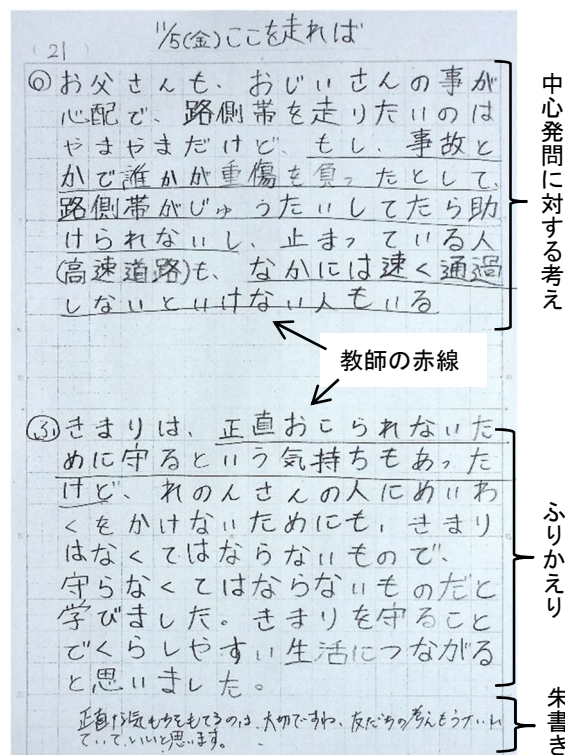 11/5(金)ここを走れば
(21)
◎お父さんも、おじいさんの事が
心配で、路側帯を走りたいのは
やまやまだけど、もし、事故と
かで誰かが重傷を負ったとして、
路側帯がじゅうたいしてたら助
けられないし、止まっている人
(高速道路)も、なかには速く通過
しないといけない人もいる
中心発問に対する考え
教師の赤線
ふきまりは、正直おこられないた
めに守るという気持ちもあった
けど、れのんさんの人にめいわ
くをかけないためにも、きまり
はなくてはならないもので、
守らなくてはならないものだと
学びました。きまりを守ること
でくらしやすい生活につながる
と思いました。
ふりかえり
正直な気もちをもてるのは、大切ですね。友だちの考えもうけいれ
ていて、いいと思います。
朱書き